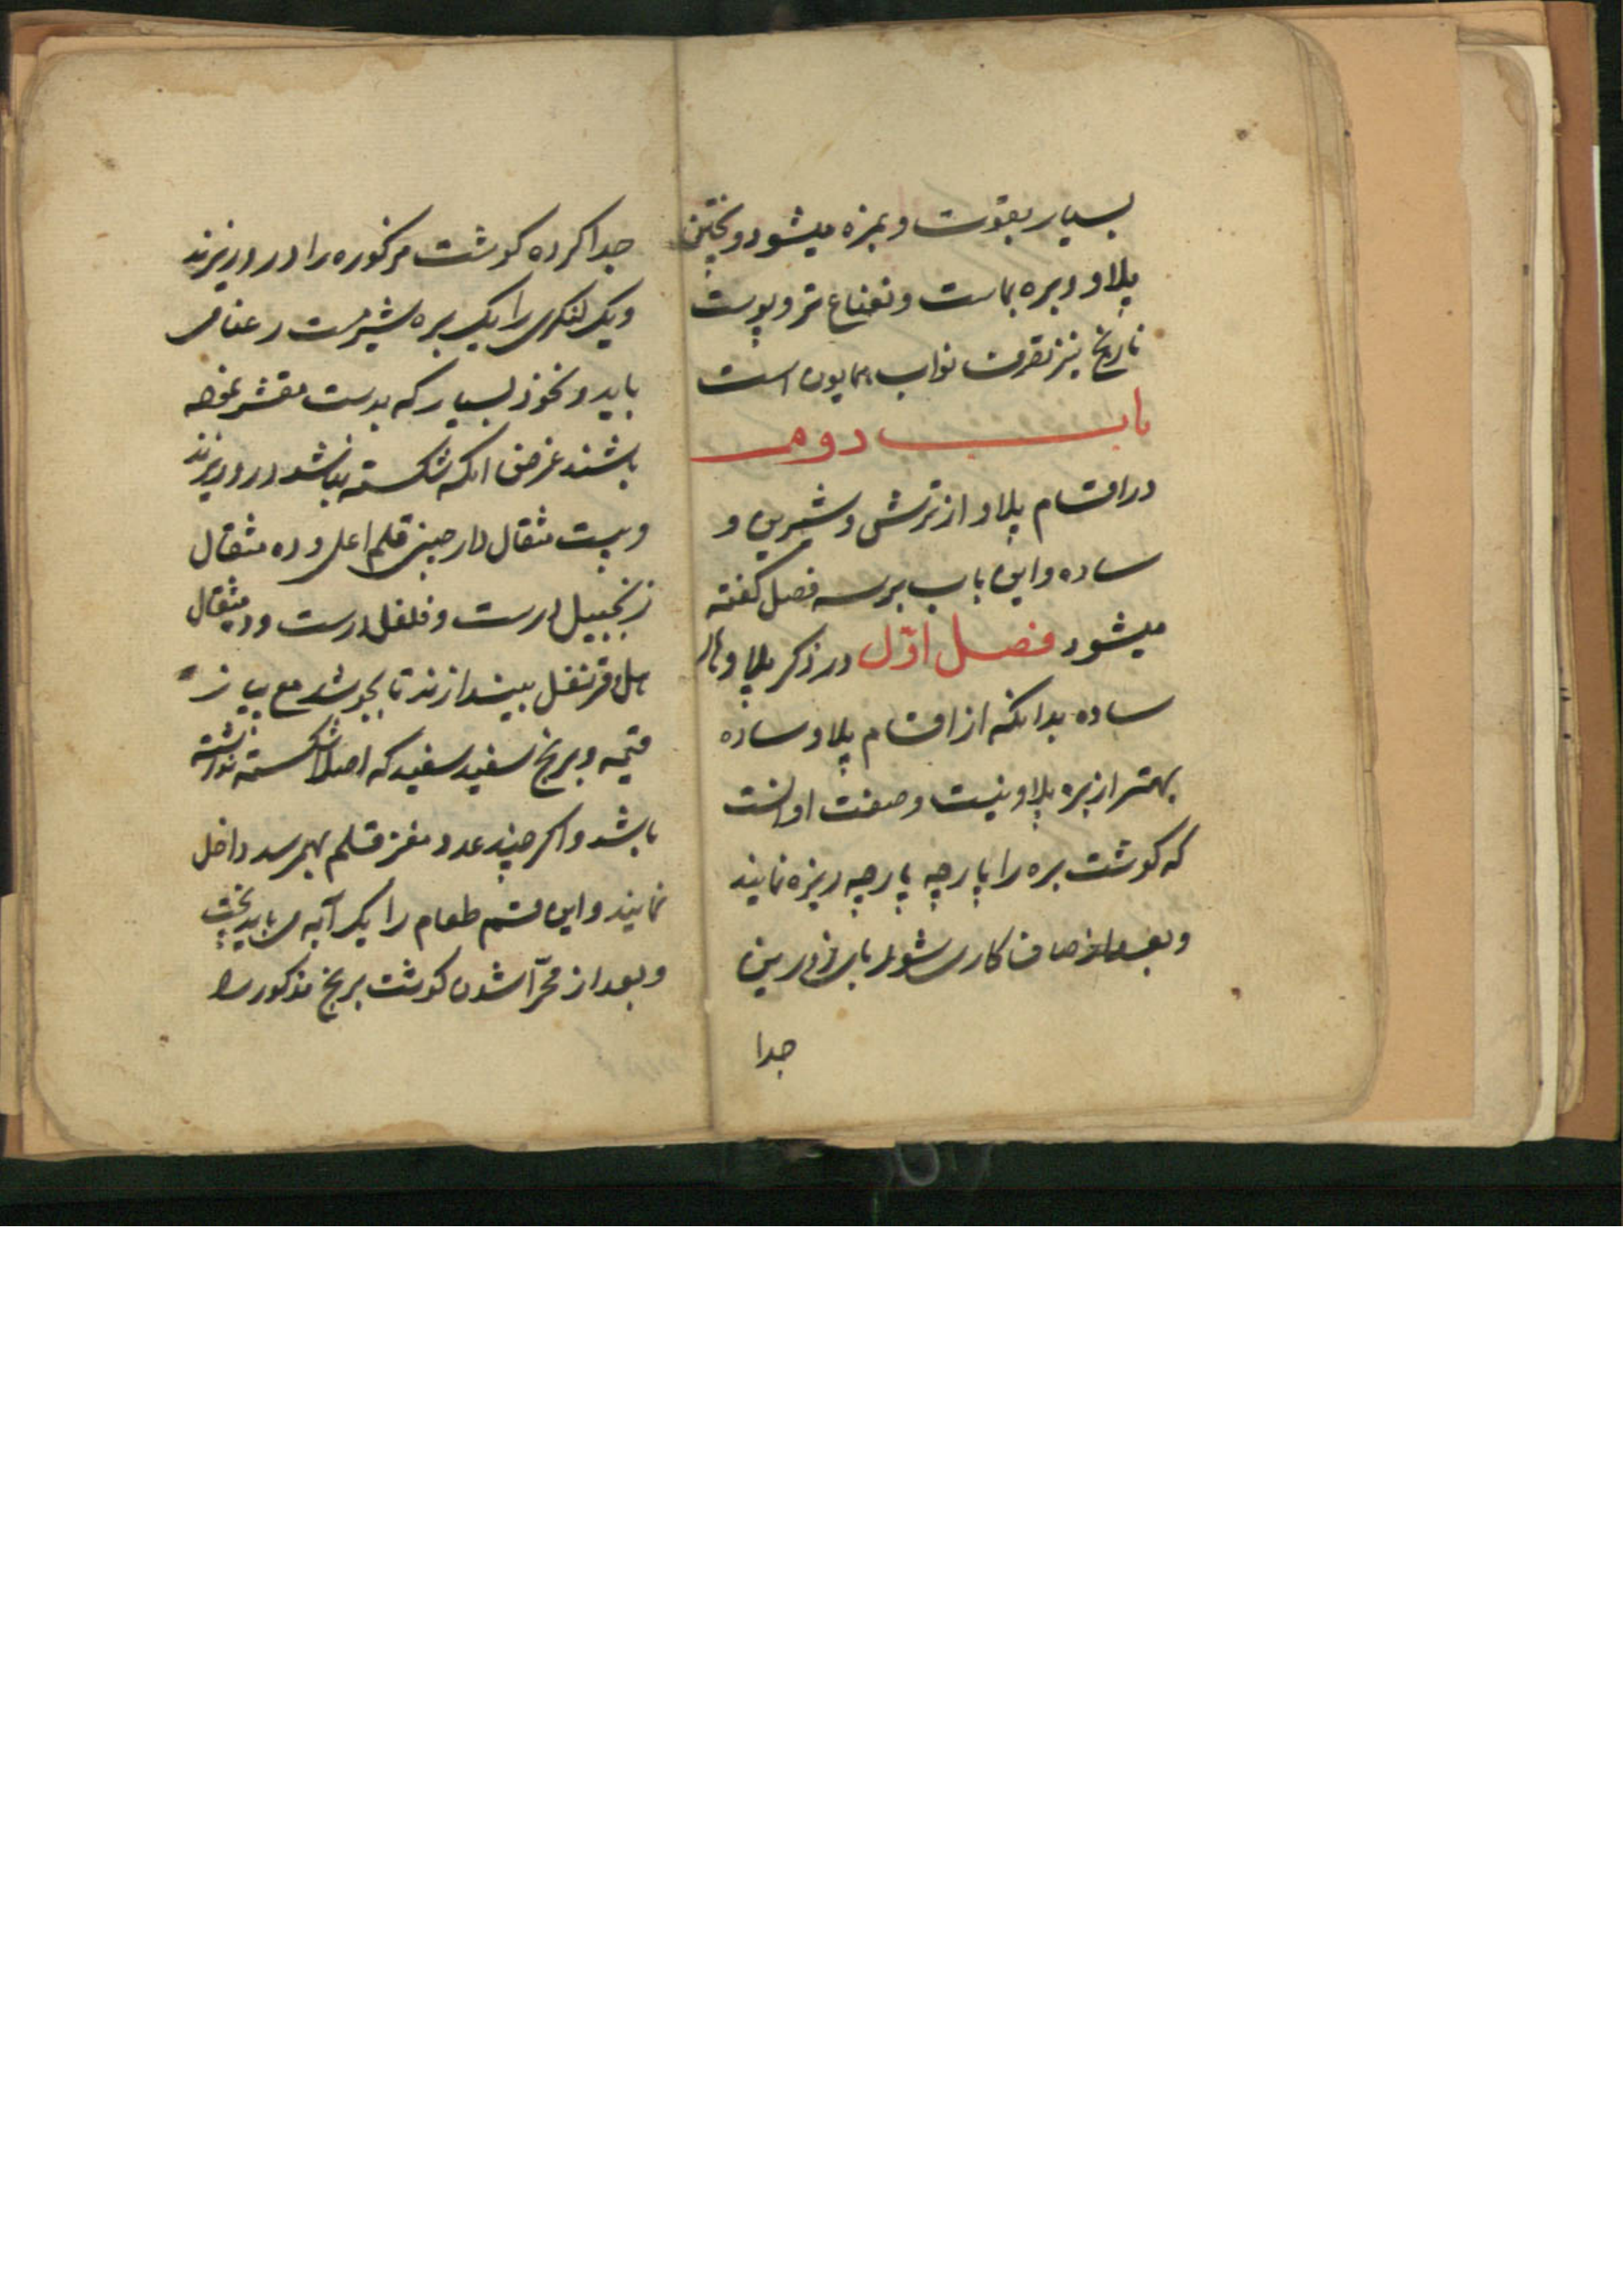 بسیار بقوت و بمزه میشود و پختن
پلاو و بره بماست و نعناع تر و پوست
نارنج نیز تصرف نواب همایون است
باب دوم
در اقسام پلاو از ترشی و شیرین و
ساده و این باب بر سه فصل گفته
میشود فصل اوّل در ذکر پلاوهای
ساده بدانکه از اقسام پلاو ساده
بهتر از بره پلاو نیست و صفت او انست
که کوشت بره را پارچه پارچه ریزه نمایند
و بعد از صاف کاری شوربای
جدا
جدا کرده کوشت مزکوره را در دو ریزند
و یک لنکری را یک بره شیرمست رعنا می
باید و نخود بسیار که بدست مقشر نموده
باشند غرض انکه شکسته نباشد در و ریزند
و بیست مثقال دارچینی قلم اعلی و ده مثقال
زنجبیل درست و فلفل درست و ده مثقال
هل و قرنفل بیندازند تا بجوشد مع پیاز
قیمه و برنج سفید سفید که اصلا شکسته نداشته
باشد و اکر چند عدد مغز قلم بهم رسد داخل
نمایند و این قسم طعام را یک آبه می باید پخت
و بعد از محرّا شدن کوشت برنج مذکور را